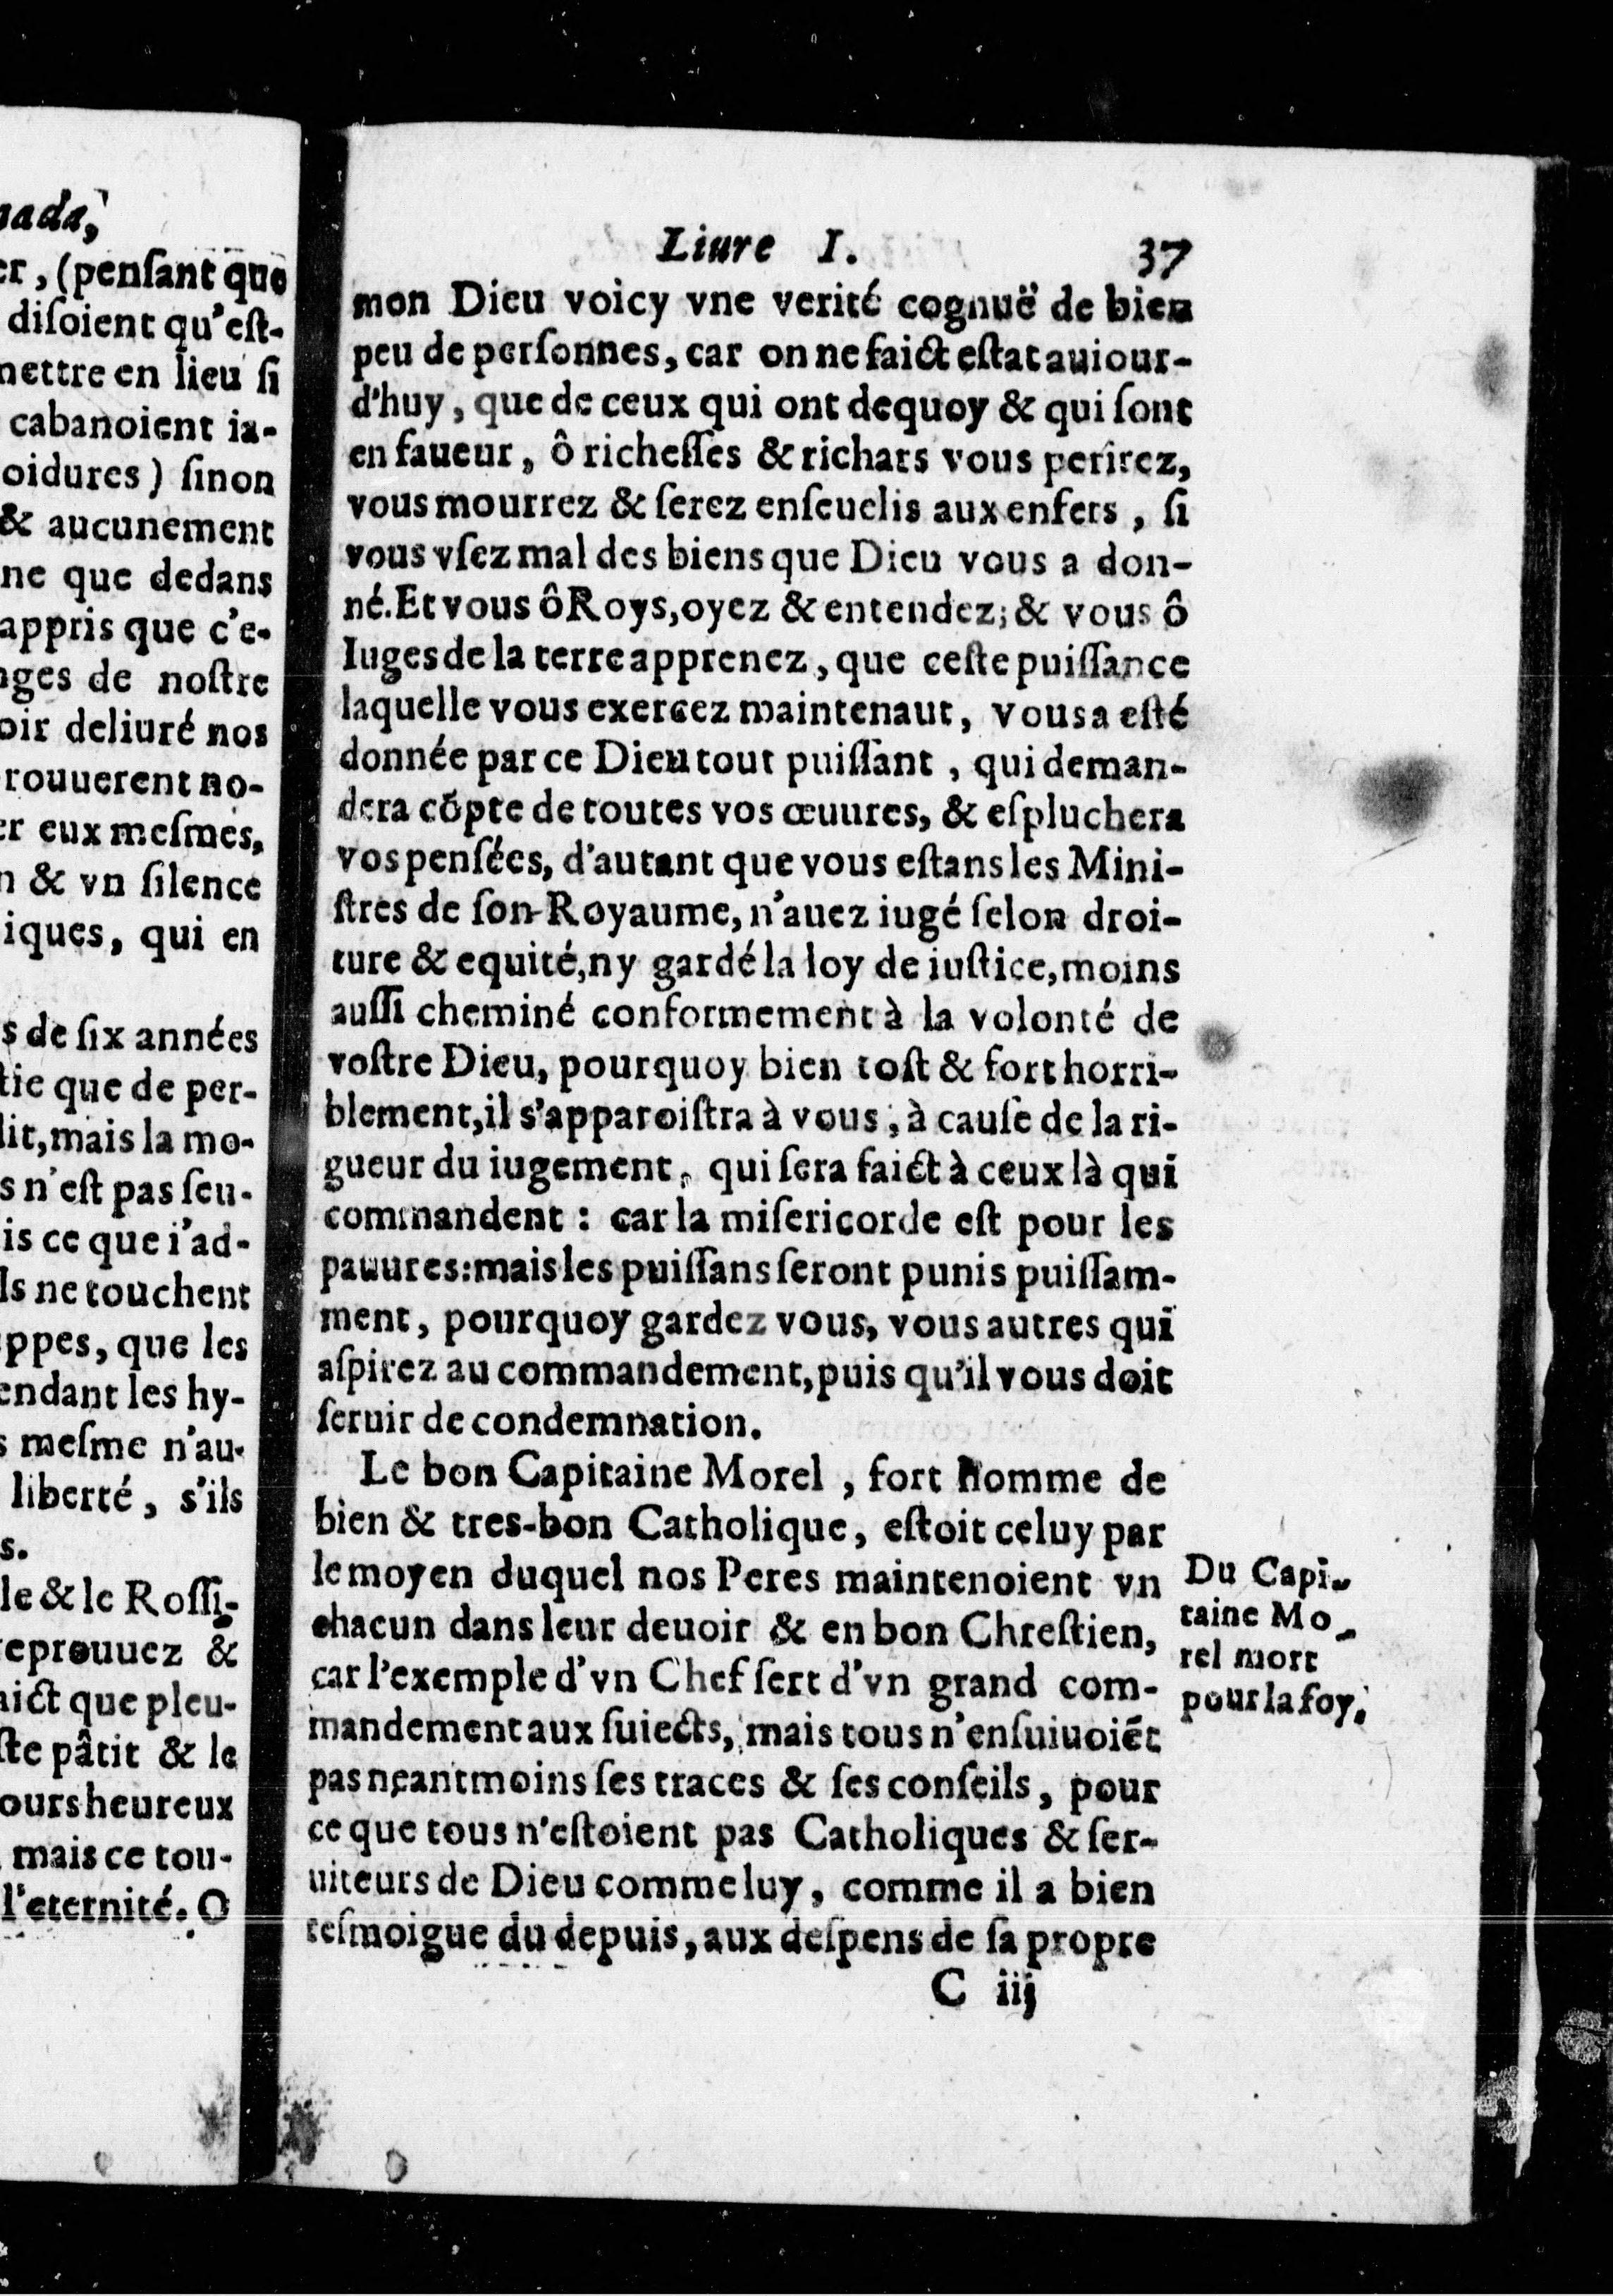 nada,
er, (penſant que
diſoient qu'eſt-
mettre en lieu ſi
cabanoient ia-
oidures) ſinon
& aucunement
ne que dedans
appris que c'e-
nges de noſtre
oir deliuré nos
rouuerent no-
er eux meſmes,
n & vn ſilence
iques, qui en
s de ſix années
tie que de per-
dit, mais la mo-
s n'eſt pas ſeu-
is ce que i'ad-
ls ne touchent
ppes, que les
endant les hy-
s meſme n'au-
liberté, s'ils
s.
le & le Roſſi-
reprouuez &
aict que pleu-
ſte pâtit & le
ours heureux
mais ce tou-
l'eternité. O
Liure I. 37
mon Dieu voicy vne verité cognuë de bien
peu de perſonnes, car on ne faict eſtat auiour-
d'huy, que de ceux qui ont dequoy & qui ſont
en faueur, ô richeſſes & richars vous perirez,
vous mourrez & ſerez enſeuelis aux enfers, ſi
vous vſez mal des biens que Dieu vous a don-
né. Et vous ô Roys, oyez & entendez; & vous ô
Iuges de la terre apprenez, que ceſte puiſſance
laquelle vous exercez maintenaut, vous a eſté
donnée par ce Dieu tout puiſſant, qui deman-
dera cõpte de toutes vos œuures, & eſpluchera
vos penſées, d'autant que vous eſtans les Mini-
ſtres de ſon Royaume, n'auez iugé ſelon droi-
ture & equité, ny gardé la loy de iuſtice, moins
auſſi cheminé conformement à la volonté de
voſtre Dieu, pourquoy bien toſt & fort horri-
blement, il s'apparoiſtra à vous, à cauſe de la ri-
gueur du iugement, qui ſera faict à ceux là qui
commandent : car la miſericorde eſt pour les
pauures: mais les puiſſans ſeront punis puiſſam-
ment, pourquoy gardez vous, vous autres qui
aſpirez au commandement, puis qu'il vous doit
ſeruir de condemnation.
Le bon Capitaine Morel, fort homme de
bien & tres-bon Catholique, eſtoit celuy par
le moyen duquel nos Peres maintenoient vn
chacun dans leur deuoir & en bon Chreſtien,
car l'exemple d'vn Chef ſert d'vn grand com-
mandement aux ſuiects, mais tous n'enſuiuoiẽt
pas neantmoins ſes traces & ſes conſeils, pour
ce que tous n'eſtoient pas Catholiques & ſer-
uiteurs de Dieu comme luy, comme il a bien
teſmoigue du depuis, aux deſpens de ſa propre
C iij
Du Capi-
taine Mo-
rel mort
pour la foy.